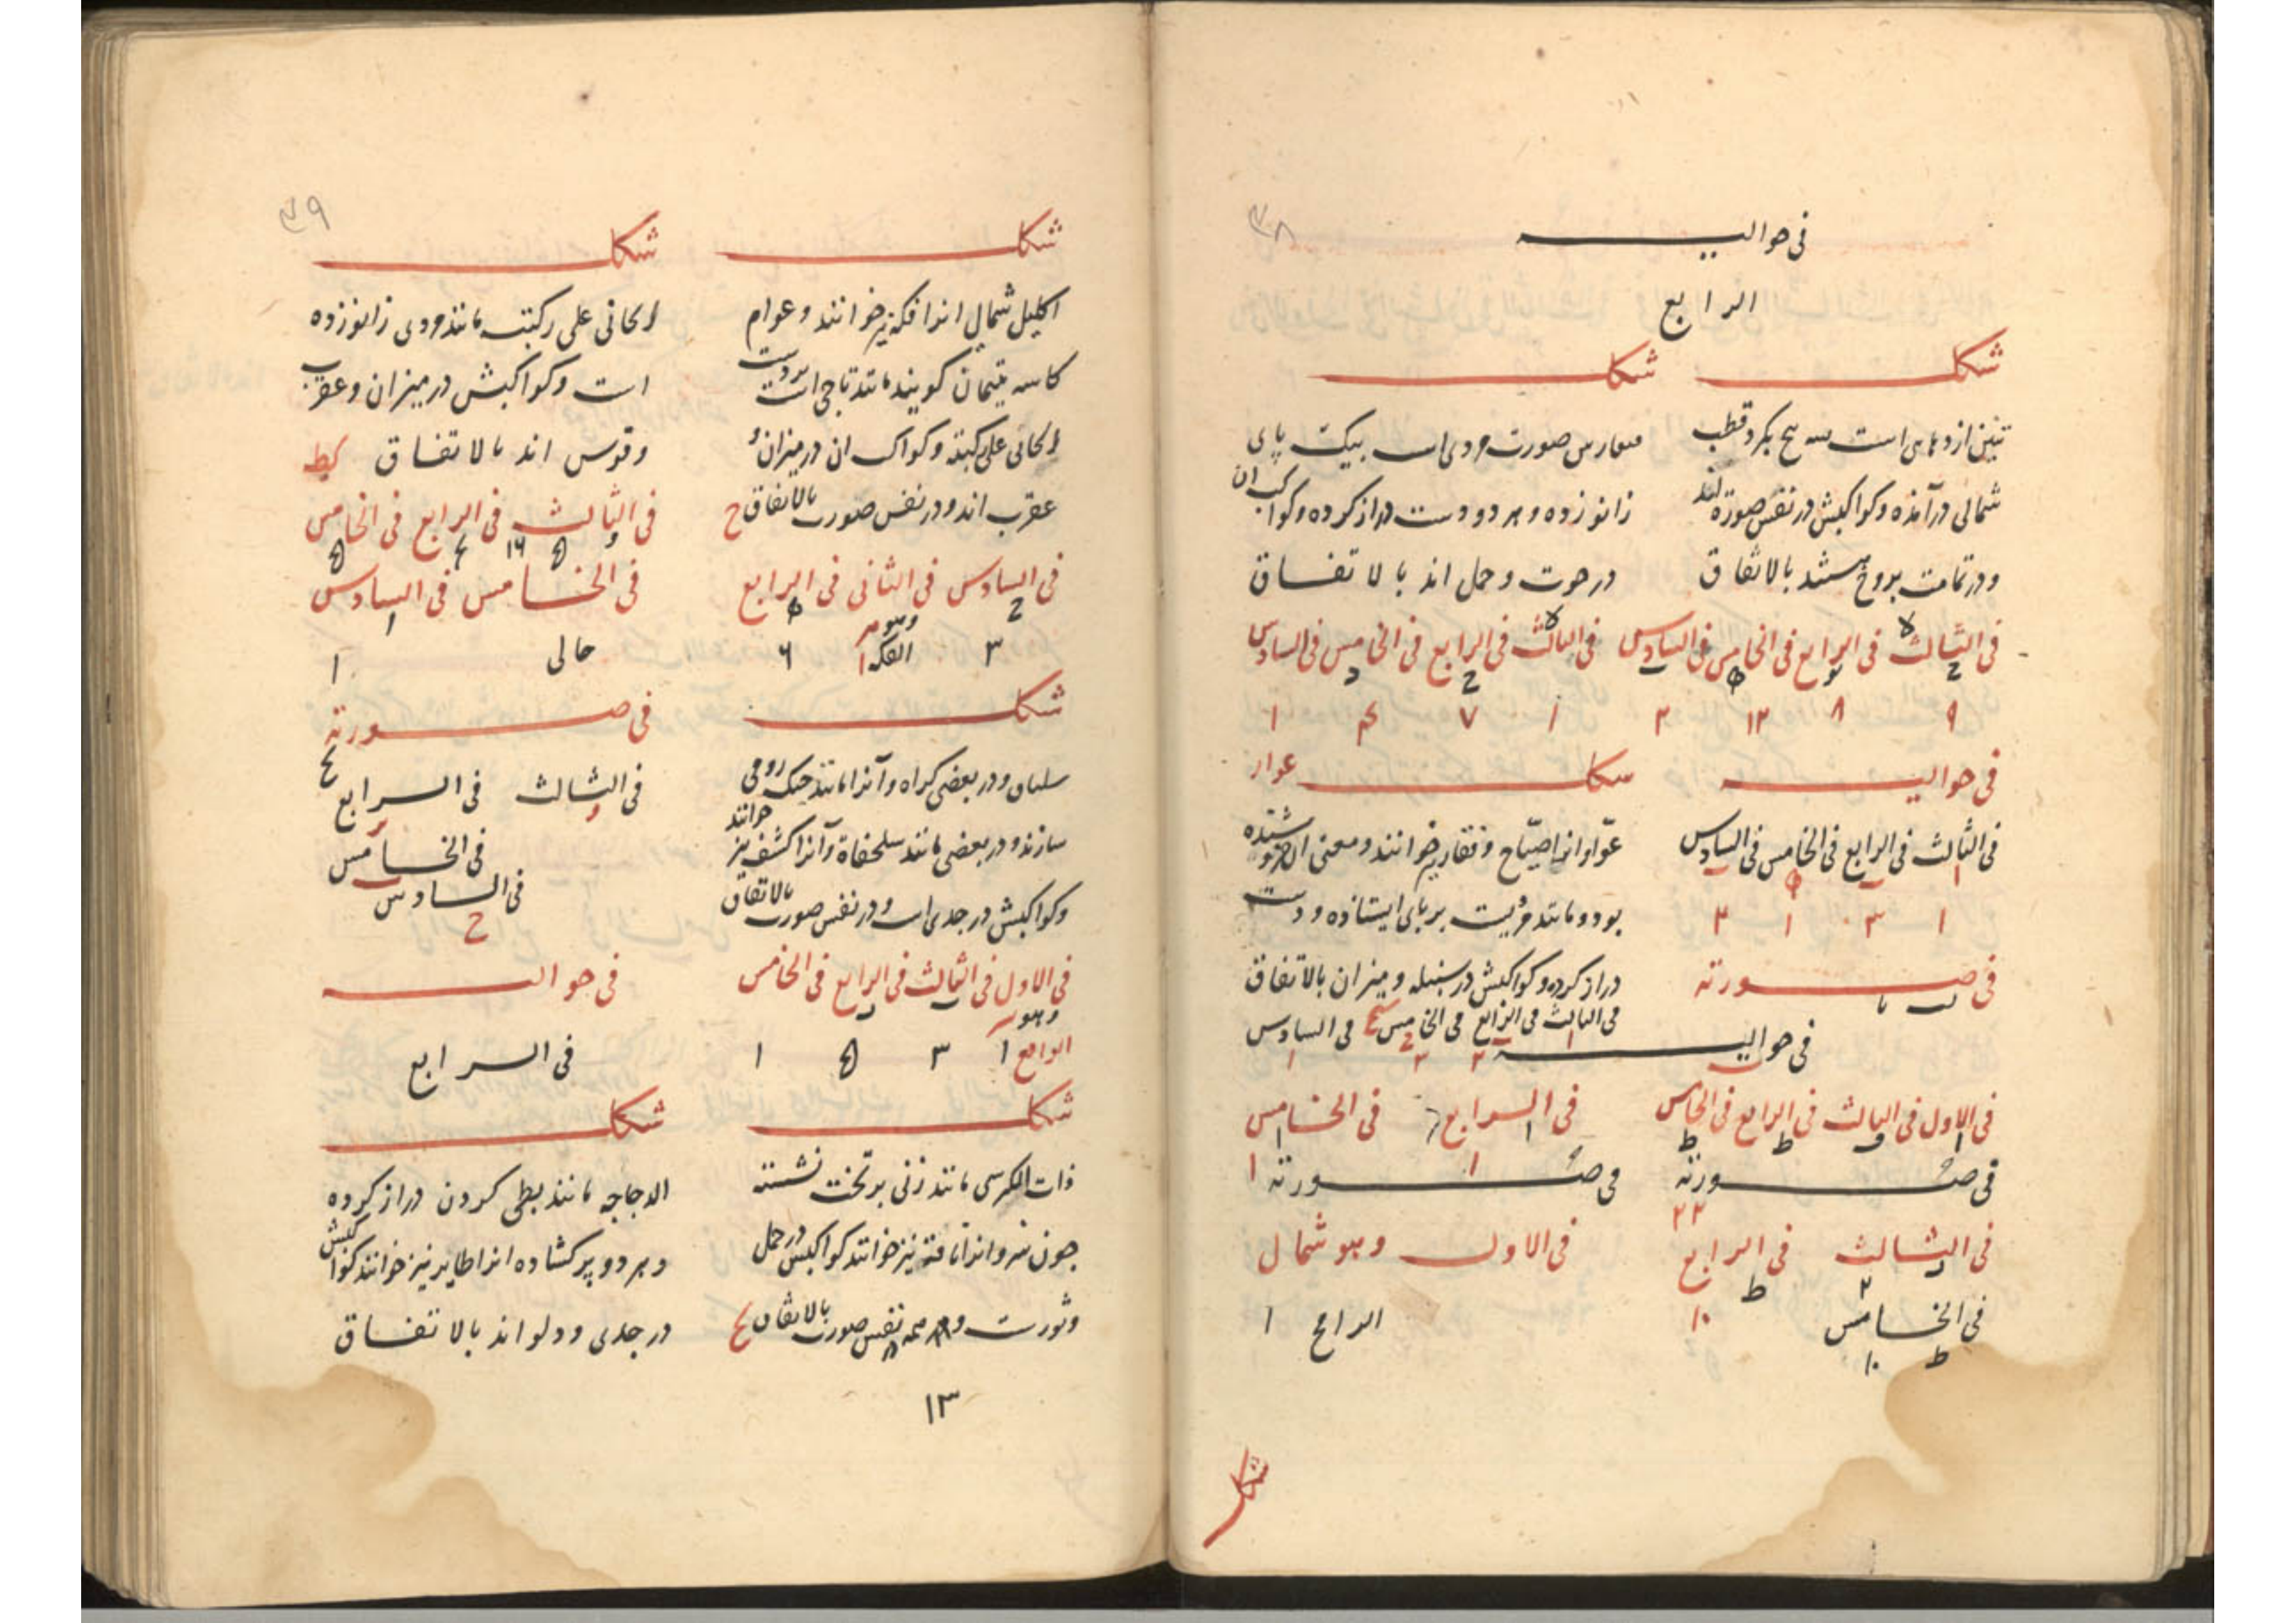 ٣٨
فی حوالیه
الرابع
شکل
تنین اژدهای است بگرد قطب
شمالی درآمده و کواکبش در نفس صورة اند
و در تمامت بروج هستند بالاتفاق
فی الثالث فی الرابع فی الخامس فی السادس
٩ ٨ ١٣ ٣
فی حوالیه
فی الثالث فی الرابع فی الخامس فی السادس
١ ٣ ١ ٣
فی صورته
فی حوالیه
فی الاول فی الثالث فی الرابع فی الخامس
فی صورته
فی الثالث فی الرابع
فی الخامس
شکل
صورت مردی است بیک پای
زانو زده و هر دو دست دراز کرده و کواکب ان
در حوت و حمل اند بالاتفاق
فی الثالث فی الرابع فی الخامس فی السادس
١ ٧ ۴ ١
شکل عوا
عوا و انرا صیاح و نقار نیز خوانند و معنی ان خروشنده
بود و مانند مردیست بر پای ایستاده و دست
دراز کرده و کواکبش در سنبله و میزان بالاتفاق
فی الثالث فی الرابع فی الخامس فی السادس
فی الرابع فی الخامس
فی صورته
فی الاول وهو شمال
الرامح ١
شکل
٣٩
شکل
اکلیل شمالی انرا فکه نیز خوانند و عوام
کاسه یتیمان کویند مانند تاجی است بر دست
الجاثی علی رکبته و کواکب ان در میزان و
عقرب اند و در نفس صورت بالاتفاق ح
فی السادس فی الثانی فی الرابع
٣ الفکه ١ ۶
شکل
و در بعضی کراه و آنرا مانند چنک رومی
سازند و در بعضی مانند سلحفاة و آنرا کشف نیز خوانند
و کواکبش در جدی است و در نفس صورت بالاتفاق
فی الاول فی الثالث فی الرابع فی الخامس
الواقع ١ ٣ ۵ ١
شکل
ذات الکرسی مانند زنی بر تخت نشسته
چون منبر و انرا ناقه نیز خوانند کواکبش در حمل
و ثورست نفس صورت بالاتفاق
١٣
شکل
الجاثی علی رکبته مانند مردی زانو زده
است و کواکبش در میزان و عقرب
و قوس اند بالاتفاق کط
فی الثالث فی الرابع فی الخامس
فی الخامس فی السادس
خالی ١
فی صورته
فی الثالث فی الرابع
فی الخامس
فی السادس
ح
فی حوالیه
فی الرابع
شکل
الدجاجه مانند بطی کردن دراز کرده
و هر دو پر کشاده انرا طایر نیز خوانند کواکبش
در جدی و دلو اند بالاتفاق